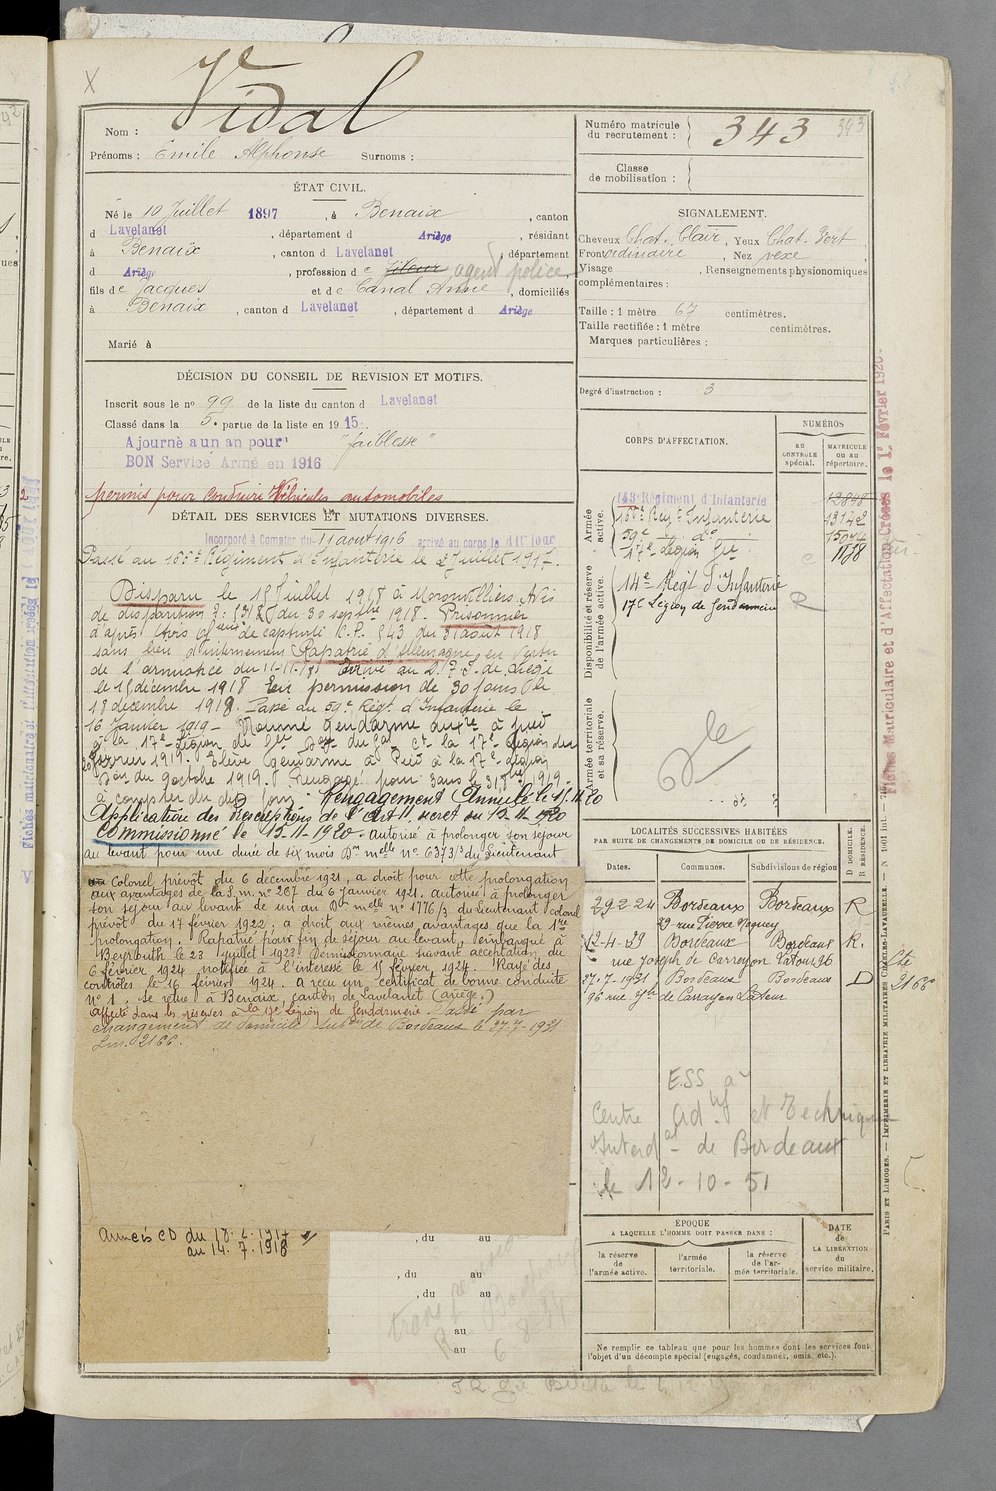 Vidal
Nom :
Prénoms : Emile Alphonse Surnoms :
Numéro matricule du recrutement : 343 343
Classe de mobilisation :
ÉTAT CIVIL.
Né le 10 Juillet 1897, à Benaix, canton
d Lavelanet, département d Ariège, résidant
à Benaix, canton d Lavelanet, département
d Ariège, profession d agent police
fils de Jacques et de Canal Anne, domiciliés
à Benaix, canton d Lavelanet, département d Ariège
Marié à
SIGNALEMENT.
Cheveux Chat. Clair, Yeux Chat. Vert
Front ordinaire, Nez vexe
Visage , Renseignements physionomiques
complémentaires :
Taille : 1 mètre 67 centimètres.
Taille rectifiée : 1 mètre centimètres.
Marques particulières :
Degré d'instruction : 3
DÉCISION DU CONSEIL DE REVISION ET MOTIFS.
Inscrit sous le n° 99 de la liste du canton d Lavelanet
Classé dans la 5e partie de la liste en 1915.
Ajourné a un an pour "faiblesse"
BON Service Armé en 1916
permis pour conduire Véhicules automobiles
DÉTAIL DES SERVICES ET MUTATIONS DIVERSES.
Incorporé à Compter du 11 août 1916 arrivé au corps le dit jour
Passé au 166e Régiment d'Infanterie le 2 Juillet 1917.
Disparu le 15 Juillet 1918 à Moronvilliers. Avis
de disparition du 30 septbre 1918. Prisonnier
d'après Avis de capture R.P. 843 du 31 août 1918
sans lieu d'internement Rapatrié d'Allemagne en vertu
de l'armistice du 11-11-18. Arrivé au de Liège
le 15 décembre 1918 En permission de 30 jours le
18 décembre 1918. Passé au 59e Régt d'Infanterie le
16 Janvier 1919. Nommé Gendarme auxre à pied
à la 17e Légion de la 17e Légion du
Février 1919. Elève Gendarme à Pied à la 17e Légion
du 9 octobre 1919. Rengagé pour 3 ans le 1919.
à compter du dit jour. Rengagement Annulé le 15.11.20
Application des prescriptions de l'Art 11 du 12-11-1920
Commissionné le 15-11-1920. Autorisé à prolonger son séjour
au levant pour une durée de six mois Don melle n° 6373/3 du Lieutenant
Colonel prévôt du 6 décembre 1921, a droit pour cette prolongation
aux avantages de la D.m. n° 267 du 6 Janvier 1921. autorisé à prolonger
son séjour au levant de un an Don melle n° 1776/3 du Lieutenant colonel
prévôt du 17 février 1922 : a droit aux mêmes avantages que la 1re
prolongation. Rapatrié pour fin de séjour au levant, embarqué à
Beyrouth le 23 juillet 1923. Démissionnaire suivant acceptation du
6 février 1924 notifiée à l'intéressé le 15 février 1924. Rayé des
contrôles le 16 février 1924. a reçu un certificat de bonne conduite
N° 1. Se retire à Benaix, canton de Lavelanet (Ariège.)
affecté dans les réserves à la 17e Légion de Gendarmerie. Passé par
changement de domicile subon de Bordeaux le 27-7-1931
Lm. 2166.
Armées CD du 18.2.1917
au 14.7.1918
, du au
, du au
, du au
au
au
CORPS D'AFFECTATION.
NUMÉROS
AU CONTRÔLE spécial.
MATRICULE OU AU répertoire.
Armée active.
143e Régiment d'Infanterie 12848
166e Regt Infanterie 13142
59e do 15074
17e Légion Gie 1178
Disponibilité et réserve de l'armée active.
14e Regt d'Infanterie
17e Légion de Gendarmerie
R
Armée territoriale et sa réserve.
LOCALITÉS SUCCESSIVES HABITÉES
PAR SUITE DE CHANGEMENTS DE DOMICILE OU DE RÉSIDENCE.
Dates. Communes. Subdivisions de région
D DOMICILE. R RÉSIDENCE.
29-2-24 Bordeaux Bordeaux R
29 rue Pierre
12-4-29 Bordeaux Bordeaux R.
rue Joseph de Carrayon Latour 96
27-7-1931 Bordeaux Bordeaux D
96 rue Jph de Carrayon Latour
2166
ESS à
Centre Adtif et Technique
Interdal de Bordeaux
le 12-10-51
ÉPOQUE
A LAQUELLE L'HOMME DOIT PASSER DANS :
la réserve de l'armée active.
l'armée territoriale.
la réserve de l'armée territoriale.
DATE de LA LIBÉRATION du service militaire.
Ne remplir ce tableau que pour les hommes dont les services font
l'objet d'un décompte spécial (engagés, condamnés, omis, etc.).
Fiches Matriculaire et d'Affectation Créées le 1er Février 1926.
PARIS ET LIMOGES. — IMPRIMERIE ET LIBRAIRIE MILITAIRES CHARLES-LAVAUZELLE.